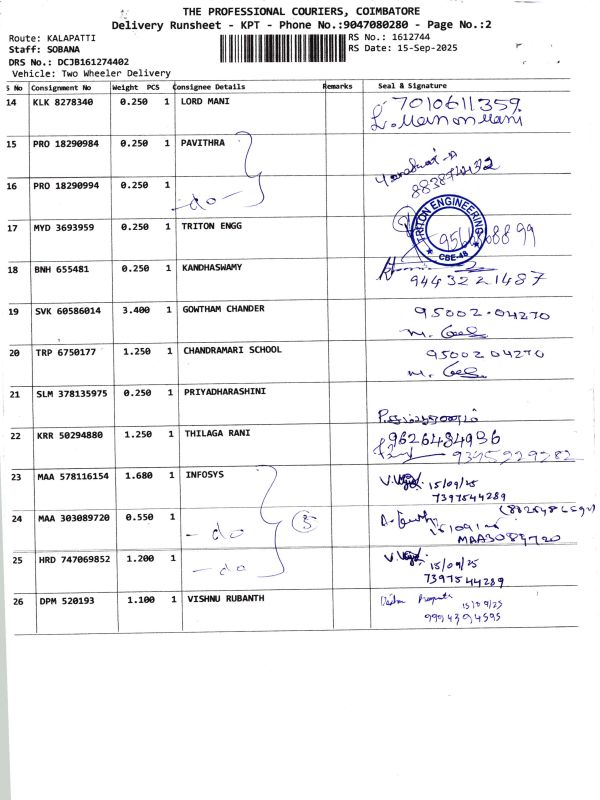 THE PROFESSIONAL COURIERS, COIMBATORE
Delivery Runsheet - KPT - Phone No.:9047080280 - Page No.:2
Route: KALAPATTI RS No.: 1612744
Staff: SOBANA RS Date: 15-Sep-2025
DRS No.: DCJB161274402
Vehicle: Two Wheeler Delivery
S No Consignment No Weight PCS Consignee Details Remarks Seal & Signature
14 KLK 8278340 0.250 1 LORD MANI 7010611359
15 PRO 18290984 0.250 1 PAVITHRA
16 PRO 18290994 0.250 1 -do-
17 MYD 3693959 0.250 1 TRITON ENGG TRITON ENGINEERING CBE-48
18 BNH 655481 0.250 1 KANDHASWAMY 9443221487
19 SVK 60586014 3.400 1 GOWTHAM CHANDER 95002-04270
20 TRP 6750177 1.250 1 CHANDRAMARI SCHOOL 95002 04270
21 SLM 378135975 0.250 1 PRIYADHARASHINI
22 KRR 50294880 1.250 1 THILAGA RANI 9626484936
9345229282
23 MAA 578116154 1.680 1 INFOSYS 15/09/25
7397544289
24 MAA 303089720 0.550 1 -do 3
MAA3089720
25 HRD 747069852 1.200 1 -do 15/09/25
7397544289
26 DPM 520193 1.100 1 VISHNU RUBANTH 15/09/25
9994394595